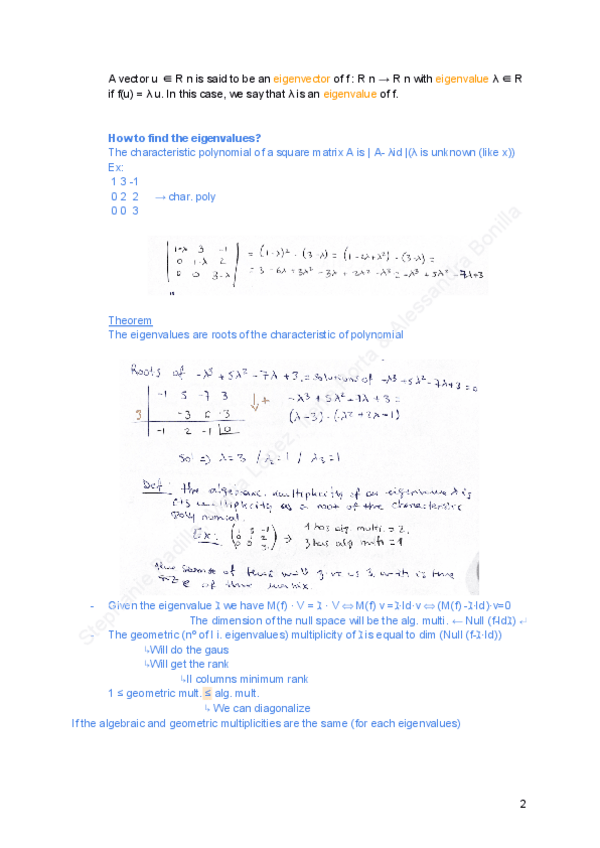 A vector u ∈ R n is said to be an eigenvector of f : R n → R n with eigenvalue λ ∈ R
if f(u) = λ u. In this case, we say that λ is an eigenvalue of f.
How to find the eigenvalues?
The characteristic polynomial of a square matrix A is | A- λid |(λ is unknown (like x))
Ex:
1 3 -1
0 2 2 → char. poly
0 0 3
1-λ 3 -1
0 1-λ 2 = (1-λ)² · (3-λ) = (1-2λ+λ²) · (3-λ) =
0 0 3-λ = 3 - 6λ + 3λ² - λ + 2λ² - λ³ = -λ³ + 5λ² - 7λ+3
Theorem
The eigenvalues are roots of the characteristic of polynomial
Roots of -λ³ + 5λ² - 7λ + 3 = solutions of -λ³+5λ²-7λ+3 = 0
-1 5 -7 3 ↓+ -λ³ + 5λ² - 7λ + 3 =
3 -3 6 -3 (λ-3) · (-λ² + 2λ - 1)
-1 2 -1 0
so => λ=3 / λ₂=1 / λ₃=1
Def: the algebraic multiplicity of an eigenvalue λ is
its multiplicity as a root of the characteristic
polynomial.
Ex: → 1 has alg. multi. = 2.
3 has alg multi = 1
size of the matrix.
- Given the eigenvalue 1 we have M(f) · V = 1 · V ⇔ M(f) v =1·Id·v ⇔ (M(f) -1·Id)·v=0
The dimension of the null space will be the alg. multi. ← Null (f-Id1) ↵
- The geometric (nº of l i. eigenvalues) multiplicity of 1 is equal to dim (Null (f-1·Id))
↳Will do the gaus
↳Will get the rank
↳II columns minimum rank
1 ≤ geometric mult. ≤ alg. mult.
↳ We can diagonalize
If the algebraic and geometric multiplicities are the same (for each eigenvalues)
2